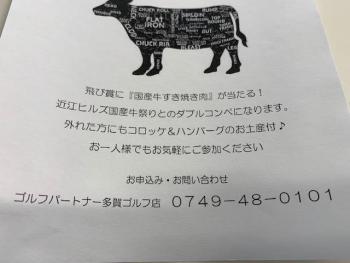 CHUCK ROLL
FLAT
IRON
CHUCK RIB
飛び賞に『国産牛すき焼き肉』が当たる！
近江ヒルズ国産牛祭りとのダブルコンペになります。
外れた方にもコロッケ＆ハンバーグのお土産付♪
お一人様でもお気軽にご参加ください
お申込み・お問い合わせ
ゴルフパートナー多賀ゴルフ店 0749-48-0101